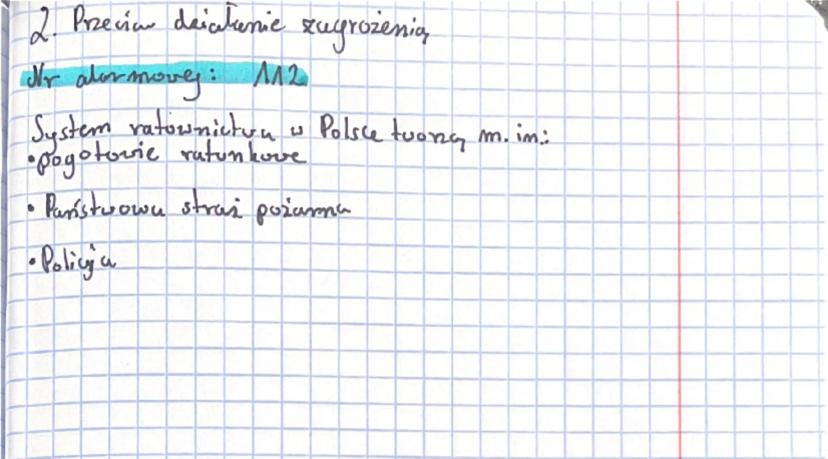 2. Przeciw działanie zagrożenią
Nr alarmowy: 112
System ratownictwa w Polsce tworzą m.in.:
•pogotowie ratunkowe
• Państwowa straż pożarna
•Policja